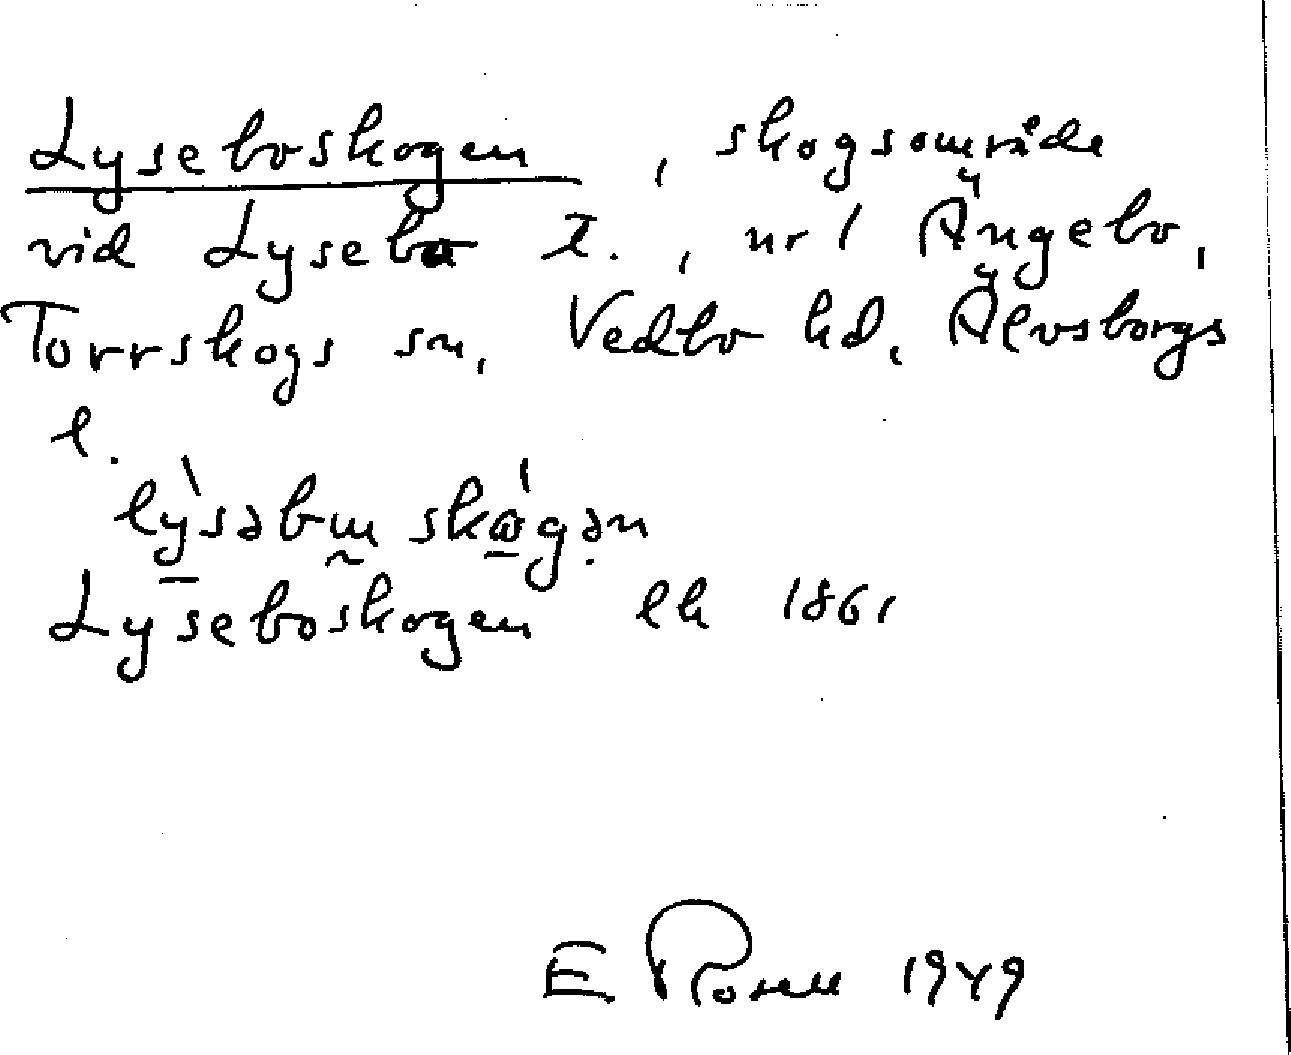 Lyseboskogen, skogsområde
vid Lysebo t., nr 1 Ängebo,
Torrskogs sn, Vedbo hd, Älvsborgs
l.
lỳsəbɯ skágən
Lyseboskogen ek 1861
E Rosell 1949